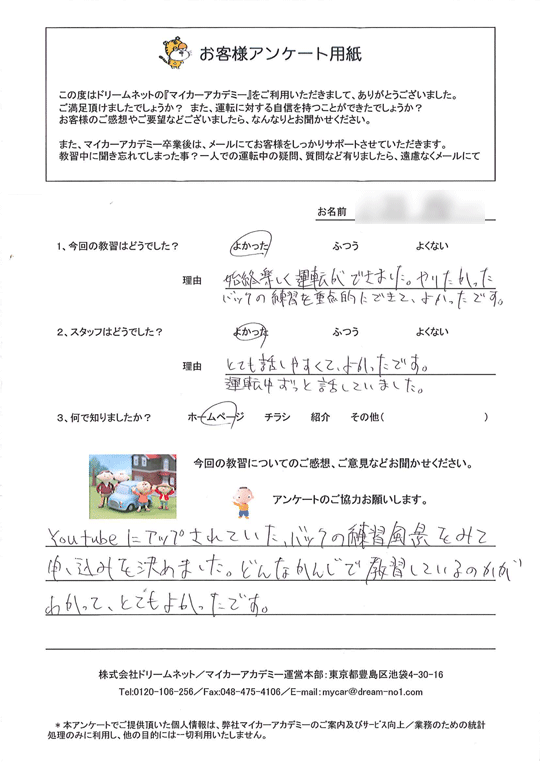 お客様アンケート用紙
この度はドリームネットの『マイカーアカデミー』をご利用いただきまして、ありがとうございました。
ご満足頂けましたでしょうか？ また、運転に対する自信を持つことができたでしょうか？
お客様のご感想やご要望などございましたら、なんなりとお聞かせください。
また、マイカーアカデミー卒業後は、メールにてお客様をしっかりサポートさせていただきます。
教習中に聞き忘れてしまった事？一人での運転中の疑問、質問など有りましたら、遠慮なくメールにて
お名前
1、今回の教習はどうでした？ よかった ふつう よくない
理由 始終楽しく運転ができました。やりたかった
バックの練習を重点的にできて、よかったです。
2、スタッフはどうでした？ よかった ふつう よくない
理由 とても話しやすくて、よかったです。
運転中ずっと話していました。
3、何で知りましたか？ ホームページ チラシ 紹介 その他( )
今回の教習についてのご感想、ご意見などお聞かせください。
アンケートのご協力お願いします。
Youtubeにアップされていた、バックの練習風景をみて
申し込みを決めました。どんなかんじで教習しているのかが
わかって、とてもよかったです。
株式会社ドリームネット／マイカーアカデミー運営本部：東京都豊島区池袋4-30-16
Tel:0120-106-256／Fax:048-475-4106／E-mail:mycar@dream-no1.com
＊本アンケートでご提供頂いた個人情報は、弊社マイカーアカデミーのご案内及びサービス向上／業務のための統計
処理のみに利用し、他の目的には一切利用いたしません。